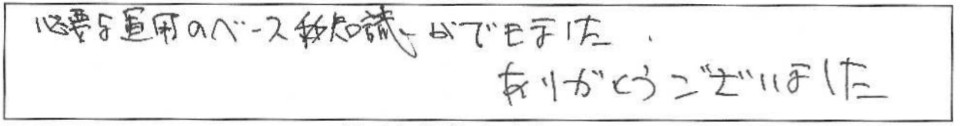 必要な運用のベース知識ができました.
ありがとうございました